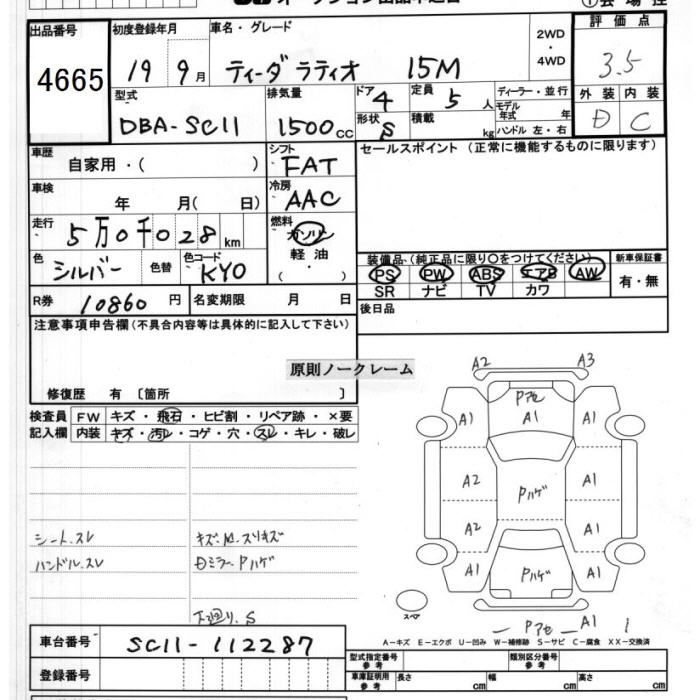 出品番号
4665
初度登録年月
19 9月
車名・グレード
ティーダ ラティオ 15M
2WD
・
4WD
評価点
3.5
外装 内装
D C
型式
DBA-SC11
排気量
1500cc
ドア 4
形状 S
定員 5 人
積載 kg
ディーラー・並行
モデル年式 年
ハンドル 左・右
車歴
自家用・( )
シフト
FAT
セールスポイント (正常に機能するものに限ります)
車検
年 月( 日)
冷房
AAC
走行
5万0千028km
燃料
ガソリン
軽油
・( )
色
シルバー
色替
色コード
KY0
装備品 (純正品に限り○をつけてください)
PS PW ABS エアB AW
SR ナビ TV カワ
新車保証書
有・無
R券 10860 円
名変期限 月 日
後日品
注意事項申告欄 (不具合内容等は具体的に記入して下さい)
原則ノークレーム
修復歴 有 〔箇所 〕
検査員記入欄
FW キズ・飛石・ヒビ割・リペア跡・×要
内装 キズ・汚レ・コゲ・穴・スレ・キレ・破レ
シートスレ
ハンドルスレ
Dミラー Pハゲ
下廻り S
A2 A3
Pアセ
A1 A1 A1
A2 Pハゲ A1
A2 A1
A1 Pハゲ A1
スペア
Pアセ A1
A-キズ E-エクボ U-凹み W-補修跡 S-サビ C-腐食 XX-交換済
車台番号
SC11-112287
登録番号
型式指定番号
参考
類別区分番号
参考
車庫証明用
参考
長さ cm
幅 cm
高さ cm